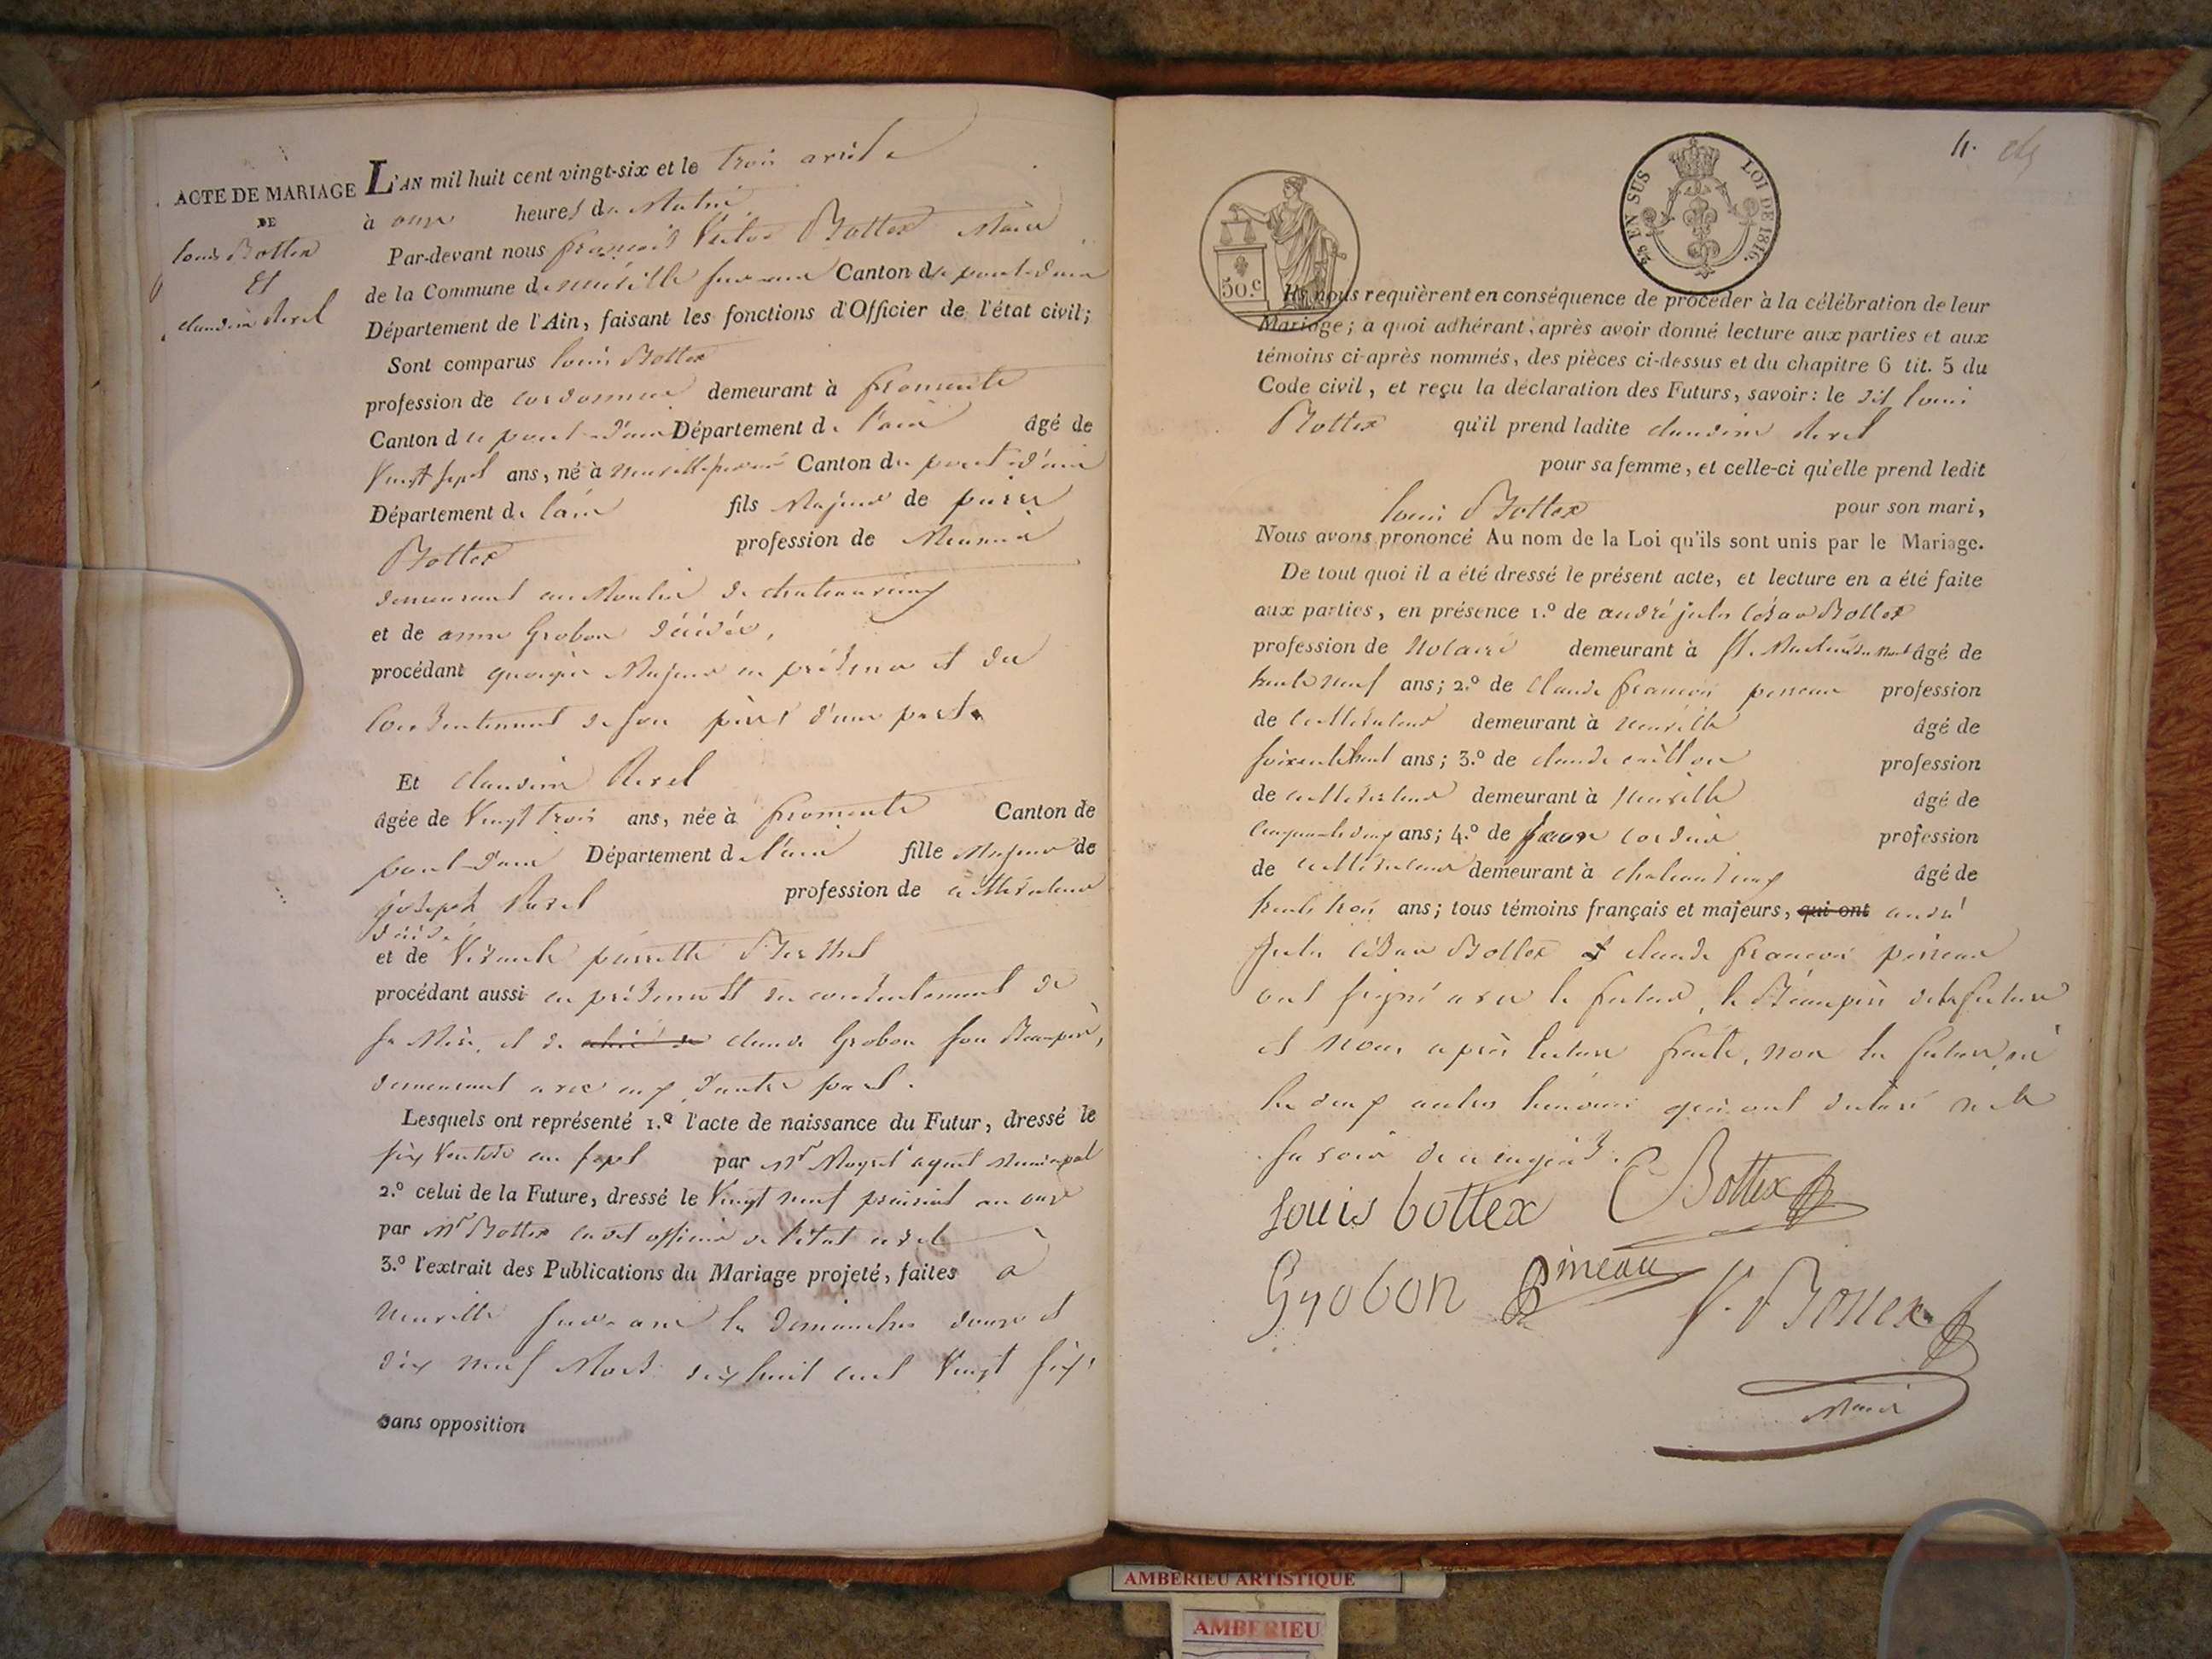 ACTE DE MARIAGE
DE
louis Bottex
Et
claudine
L'AN mil huit cent vingt-six et le trois avril
à onze heures du Matin
Par-devant nous françois Victor Bottex Maire
de la Commune de neuville sur ain Canton de pont-d'ain
Département de l'Ain, faisant les fonctions d'Officier de l'état civil;
Sont comparus louis Bottex
profession de cordonnier demeurant à fromente
Canton de pont-d'ain Département de l'ain âgé de
Vingt sept ans, né à neuville sur ain Canton de pont-d'ain
Département de l'ain fils Majeur de pierre
Bottex profession de Meunier
demeurant au Moulin de chateauvieux
et de anne Grobon décédée,
procédant quoique Majeur en présence et du
Consentement de son père d'une part
Et claudine
âgée de Vingt trois ans, née à fromente Canton de
pont-d'ain Département de l'ain fille Majeure de
joseph profession de cultivateur
décédé
et de pierrette
procédant aussi en présence et du consentement de
sa Mère, et de claude Grobon son Beaupère,
demeurant avec eux d'autre part.
Lesquels ont représenté 1.º l'acte de naissance du Futur, dressé le
six Ventose an sept par Mr agent Municipal
2.º celui de la Future, dressé le Vingt neuf prairial an onze
par Mr Bottex cadet officier de l'état civil
3.º l'extrait des Publications du Mariage projeté, faites à
Neuville sur-ain les dimanches douze et
dix neuf Mars dix huit cent Vingt six
Sans opposition
4.
50.c
EN SUS LOI DE 1816.
Ils nous requièrent en conséquence de procéder à la célébration de leur
Mariage; a quoi adhérant, après avoir donné lecture aux parties et aux
témoins ci-après nommés, des pièces ci-dessus et du chapitre 6 tit. 5 du
Code civil, et reçu la déclaration des Futurs, savoir: le dit louis
Bottex qu'il prend ladite claudine
pour sa femme, et celle-ci qu'elle prend ledit
louis Bottex pour son mari,
Nous avons prononcé Au nom de la Loi qu'ils sont unis par le Mariage.
De tout quoi il a été dressé le présent acte, et lecture en a été faite
aux parties, en présence 1.º de andré jules César Bottex
profession de Notaire demeurant à St. Martin du Mont âgé de
trente neuf ans; 2.º de Claude françois pineau profession
de cultivateur demeurant à neuville âgé de
soixante huit ans; 3.º de claude profession
de cultivateur demeurant à Neuville âgé de
cinquante deux ans; 4.º de cordier profession
de cultivateur demeurant à chateauvieux âgé de
trente trois ans; tous témoins français et majeurs, qui ont andré
Jules César Bottex et claude françois pineau
ont signé avec le futur, le Beaupère de la future
et Nous après lecture faite, non la future ni
les deux autres témoins qui ont déclaré ne le
savoir de ce enquis.
Louis bottex C Bottex
Grobon Pineau
V. Bottex
Maire
AMBERIEU ARTISTIQUE
AMBERIEU